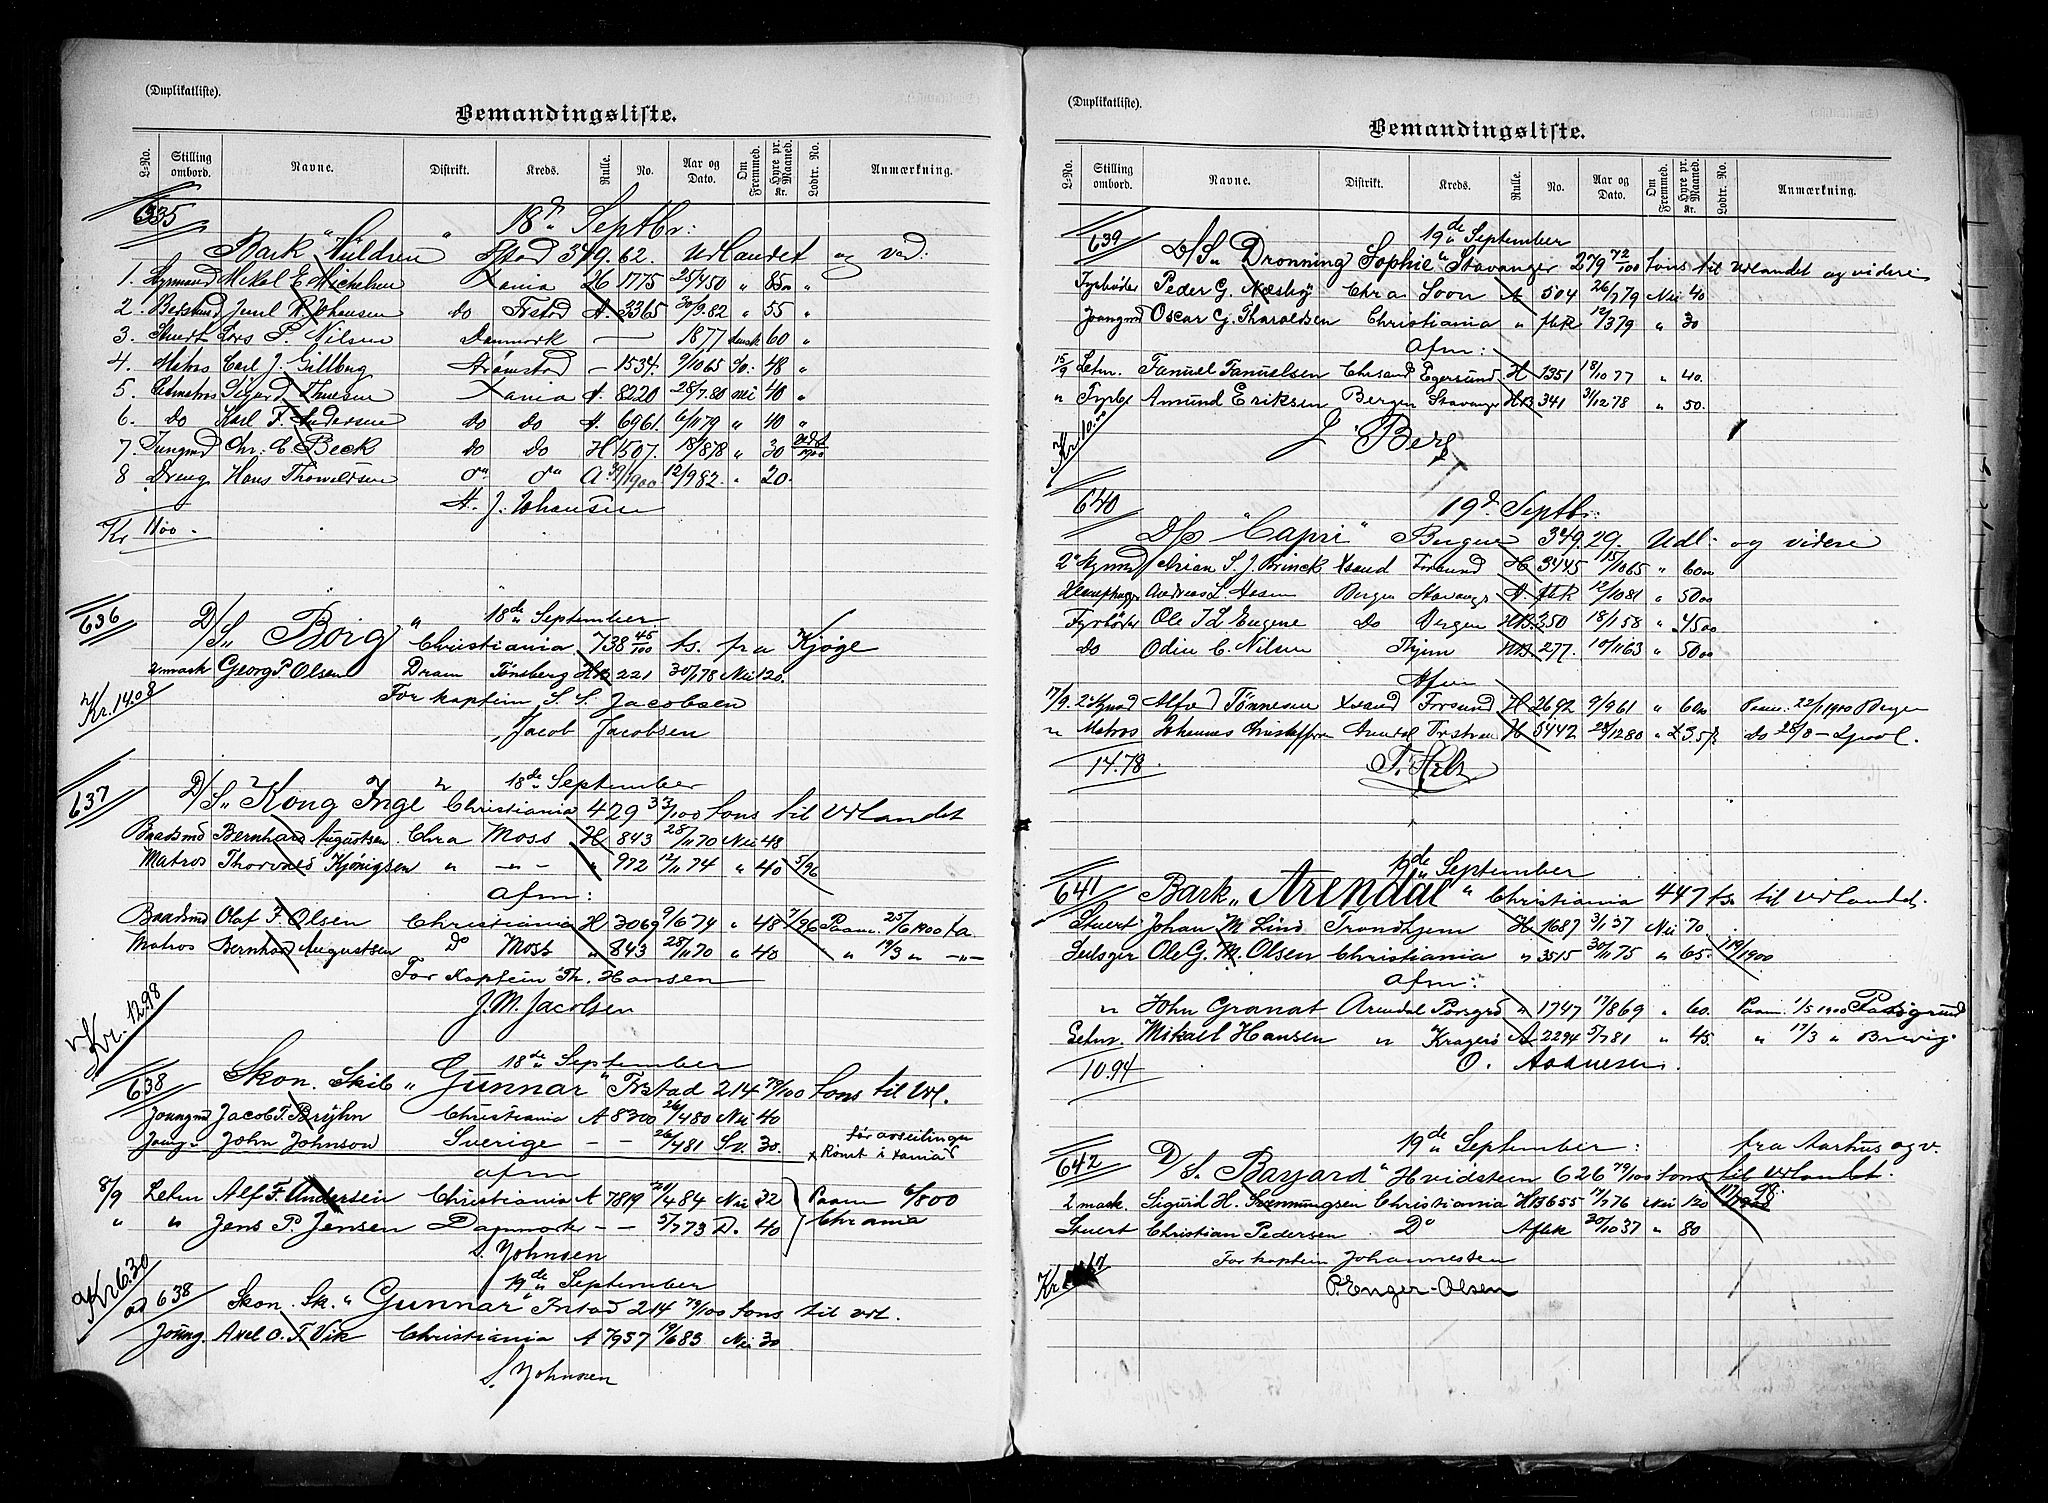 (Duplikatliste).
Bemandingsliste.
L-No. Stilling ombord. Navne. Distrikt. Kreds. Rulle. No. Aar og Dato. Om Fremmed. Hyre pr. Maaned. Kr. Lodtr. No. Anmærkning.
635 18d Septbr:
Bark " " Fstad 319.62. Udlandet og vid:
1. Styrmand Mikal E Michelsen Xania H 1775 25/4 50 " 85 00 "
2. do Fstad A. 3365 30/9.82 " 55 "
3. Stuert Lars P. Nilsen Danmark — 1877 dansk 60 "
4. Matros Carl J. Gillberg Strömstad – 1534. 9/10 65 do: 48 "
5. Letmatros Sigurd Thuesen Xania A. 8220 28/7.80 nei 40 "
6. do Karl F. Andersen do do A. 6961. 6/11 79 " 40 "
7. Jungmd Chr. C. Beck do do H 1507. 18/8 78 " 30
8 Dreng Hans Thorvaldsen d" d" A. 39/1900 12/9 82. " 20.
A. J. Johansen
Kr 11 00 -
636 18de September
D/S " Borg " Christiania 738 45/100 ts. fra Kjøge
2 mask Georg P Olsen Dram Tønsberg HB 221 30/1 78 Nei 120.
Kr. 14.08 For kaptein S. S. Jacobsen
Jacob Jacobsen
637 18de September
D/S " Kong Inge " Christiania 429 33/100 tons til Udlandet
Baadsmd Bernhard Augustsen. Chra Moss H 843 28/11 70 Nei 48
Matros Thorvald Kjönigsen " – " – " 972 12/11 74 " 40 5/96
Afm:
Baadsmd Olaf F. Olsen Christiania H 3069 9/6 74 " 48 7/96 Paam. 25/6 1900 Xa
Matros Bernhard Augustsen do Moss " 843 28/11 70 " 40 " 19/3 " – " –
For Kaptein Th. Hansen
J. M. Jacobsen
Kr. 12.98
638 18de September
Skon. Skib " Gunnar " Frstad 214 79/100 tons til Udl.
Joungmd Jacob F. Bryhn Christiania A 8300 26/4 80 Nei 40
Joung " John Johnson Sverige – – 26/4 81 Sv. 30. før avseilingen
x Rømt i Xania
afm
8/9 Letm Alf F. Andersen Christiania A 7819 20/4 84 Nei 32 Paam 6/8 00
" " Jens P. Jensen Danmark – – 5/7 73 D. 40 Chrania
S. Johnsen
Kr 6.30
ad 638 19de September
Skon. Sk. " Gunnar " Frstad 214 79/100 tons til udl.
Joung. Axel O. F. Vik Christiania A 7957 19/6 83 Nei 30
S. Johnsen
(Duplikatliste).
Bemandingsliste.
L-No. Stilling ombord. Navne. Distrikt. Kreds. Rulle. No. Aar og Dato. Om Fremmed. Hyre pr. Maaned. Kr. Lodtr. No. Anmærkning.
639 19de September
D/S " Dronning Sophie " Stavanger 279 72/100 tons til Udlandet og videre
Fyrbøder Peder G. Næsby Chra Soon A 504 26/7 79 Nei 40
Joungmd Oscar G. Tharaldsen Christiania " fbk 12/3 79 " 30
Afm:
15/9 Letm. Fanuel Fanuelsen Chrsand Egersund H 1351 18/10 77 " 40.
" Fyrbd Amund Eriksen Bergen Stavanger HB 341 31/12 78 " 50.
J Berg
640 19d. Septbr:
D/S " Capri " Bergen 349.29. Udl: og videre
2" Styrmd S. J. Brinck Xsand Farsund H 3445 15/10 65 " 60 00
Andreas L. Bergen Stavanger A fbk 12/10 81 " 50 00
Fyrbøder Ole Eugene do Bergen HB. 350 18/1 58 " 45 00
do Odin C. Nilsen Thjem HB 277. 10/11 63 " 50 00
Afm
7/9. 2" Styrmd Alfred Tønnesen Xsand Farsund H 2692 9/9 61 " 60 00 Paam. 22/1 1900 Bergen
" Matros Johannes Christoffersen Arendal H 5442 28/12 80 " do 28/8 –
14.78.
641 19de September
Bark " Arendal " Christiania 447 ts til Udlandet.
Stuert Johan M Lind Trondhjem H 1687 3/1 37 Nei 70.
Seilsger Ole G. M. Olsen Christiania " 3515 30/11 75 " 65. 119/1900
Afm:
" John Granat Arendal Porsgrd " 1747 17/8 69 " 60. Paam. 1/5 1900 Porsgrund
Letm. Mikael Hansen " Kragerö A 2294 5/7 81 " 45 " 17/3 " Brevig.
10.94 O. Aadnesen.
642 19de September: fra Aarhus og v.
D/S. " Bayard " Hvidsten 626 79/100 tons til Udlandet.
2 mask. Sigurd H. Svenningsen Christiania HB 655 17/7 76 Nei 120
Stuert Christian Pedersen do A fbk 30/10 37 " 80
For kaptein Johannessen
P. Enger-Olsen
Kr